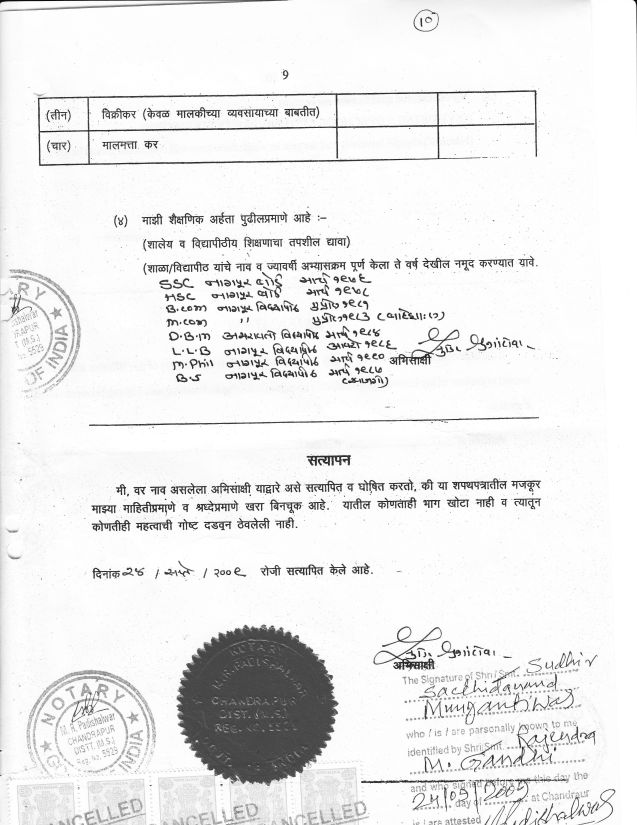 १०
9
(तीन) विक्रीकर (केवळ मालकीच्या व्यवसायाच्या बाबतीत)
(चार) मालमत्ता कर
(४) माझी शैक्षणिक अर्हता पुढीलप्रमाणे आहे :–
(शालेय व विद्यापीठीय शिक्षणाचा तपशील द्यावा)
(शाळा/विद्यापीठ यांचे नाव व ज्यावर्षी अभ्यासक्रम पूर्ण केला ते वर्ष देखील नमूद करण्यात यावे.
SSC नागपूर बोर्ड मार्च १९७६
HSC नागपूर बोर्ड मार्च १९७८
B.com नागपूर विद्यापीठ १९८१
M.com " १९८३
D.B.M अमरावती विद्यापीठ मार्च १९८४
L.L.B नागपूर विद्यापीठ १९८६
M.Phil नागपूर विद्यापीठ मार्च १९९० अभिसाक्षी
B.J नागपूर विद्यापीठ मार्च १९८७
सत्यापन
मी, वर नाव असलेला अभिसाक्षी याद्वारे असे सत्यापित व घोषित करतो, की या शपथपत्रातील मजकूर
माझ्या माहितीप्रमाणे व श्रध्देप्रमाणे खरा बिनचूक आहे. यातील कोणताही भाग खोटा नाही व त्यातून
कोणतीही महत्वाची गोष्ट दडवून ठेवलेली नाही.
दिनांक २४ / सप्टें / २००९ रोजी सत्यापित केले आहे.
अभिसाक्षी
The Signature of Shri/Smt. Sudhir
Sacchidanand
Mungantiwar
who is / are parsonally known to me
identified by Shri/Smt. Rajendra
M. Gandhi
and who signed before me this day the
24/09/2009 day at Chandrapur
is / are attested
NOTARY
M. R. Padishalwar
CHANDRAPUR
DISTT. (M.S.)
Reg. No. 5529
OF INDIA
NOTARY
M.R. PADISHALWAR
CHANDRAPUR
DIST. (M.S.)
REG. NO. 5529
GOVT. OF INDIA
CANCELLED
CANCELLED
CANCELLED